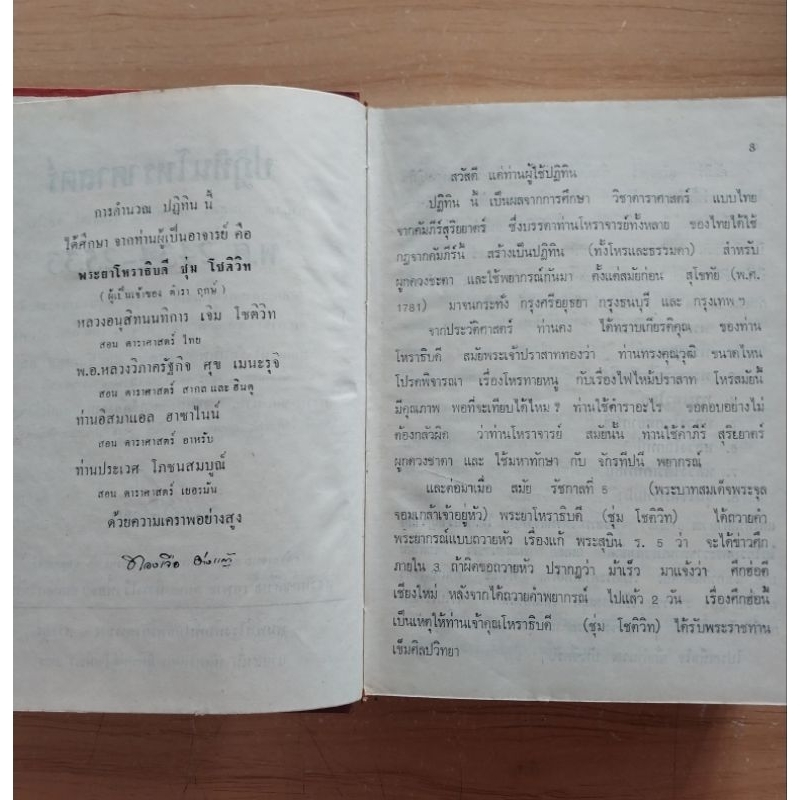 การคำนวณ ปฏิทิน นี้
ได้ศึกษา จากท่านผู้เป็นอาจารย์ คือ
พระยาโหราธิบดี ชุ่ม โชติวิท
(ผู้เป็นเจ้าของ ตำรา ฤกษ์)
หลวงอนุสิทนนทิการ เจิม โชติวิท
สอน ดาราศาสตร์ ไทย
พ.อ.หลวงวิภาครัฐกิจ ศุข เมนะรุจิ
สอน ดาราศาสตร์ สากล และ ฮินดู
ท่านอิสมาแอล ฮาซาไนน์
สอน ดาราศาสตร์ อาหรับ
ท่านประเวศ โภชนสมบูณ์
สอน ดาราศาสตร์ เยอรมัน
ด้วยความเคารพอย่างสูง
ทองเจือ อ่างแก้ว
8
สวัสดี แด่ท่านผู้ใช้ปฏิทิน
ปฏิทิน นี้ เป็นผลจากการศึกษา วิชาดาราศาสตร์ แบบไทย
จากคัมภีร์สุริยยาตร์ ซึ่งบรรดาท่านโหราจารย์ทั้งหลาย ของไทยได้ใช้
กฎจากคัมภีร์นี้ สร้างเป็นปฏิทิน (ทั้งโหรและธรรมดา) สำหรับ
ผูกดวงชะตา และใช้พยากรณ์กันมา ตั้งแต่สมัยก่อน สุโขทัย (พ.ศ.
1781) มาจนกระทั่ง กรุงศรีอยุธยา กรุงธนบุรี และ กรุงเทพ ฯ
จากประวัติศาสตร์ ท่านคง ได้ทราบเกียรติคุณ ของท่าน
โหราธิบดี สมัยพระเจ้าปราสาททองว่า ท่านทรงคุณวุฒิ ขนาดไหน
โปรดพิจารณา เรื่องโหรทายหนู กับเรื่องไฟไหม้ปราสาท โหรสมัยนี้
มีคุณภาพ พอที่จะเทียบได้ไหม ? ท่านใช้ตำราอะไร ขอตอบอย่างไม่
ต้องกลัวผิด ว่าท่านโหราจารย์ สมัยนั้น ท่านใช้คำภีร์ สุริยยาตร์
ผูกดวงชาตา และ ใช้มหาทักษา กับ จักรทีปนี พยากรณ์
และต่อมาเมื่อ สมัย รัชกาลที่ 5 (พระบาทสมเด็จพระจุล
จอมเกล้าเจ้าอยู่หัว) พระยาโหราธิบดี (ชุ่ม โชติวิท) ได้ถวายคำ
พยากรณ์แบบถวายหัว เรื่องแก้ พระสุบิน ร. 5 ว่า จะได้ข่าวศึก
ภายใน 3 ถ้าผิดขอถวายหัว ปรากฏว่า ม้าเร็ว มาแจ้งว่า ศึกฮ่อตี
เชียงใหม่ หลังจากได้ถวายคำพยากรณ์ ไปแล้ว 2 วัน เรื่องศึกฮ่อนี้
เป็นเหตุให้ท่านเจ้าคุณโหราธิบดี (ชุ่ม โชติวิท) ได้รับพระราชทาน
เข็มศิลปวิทยา